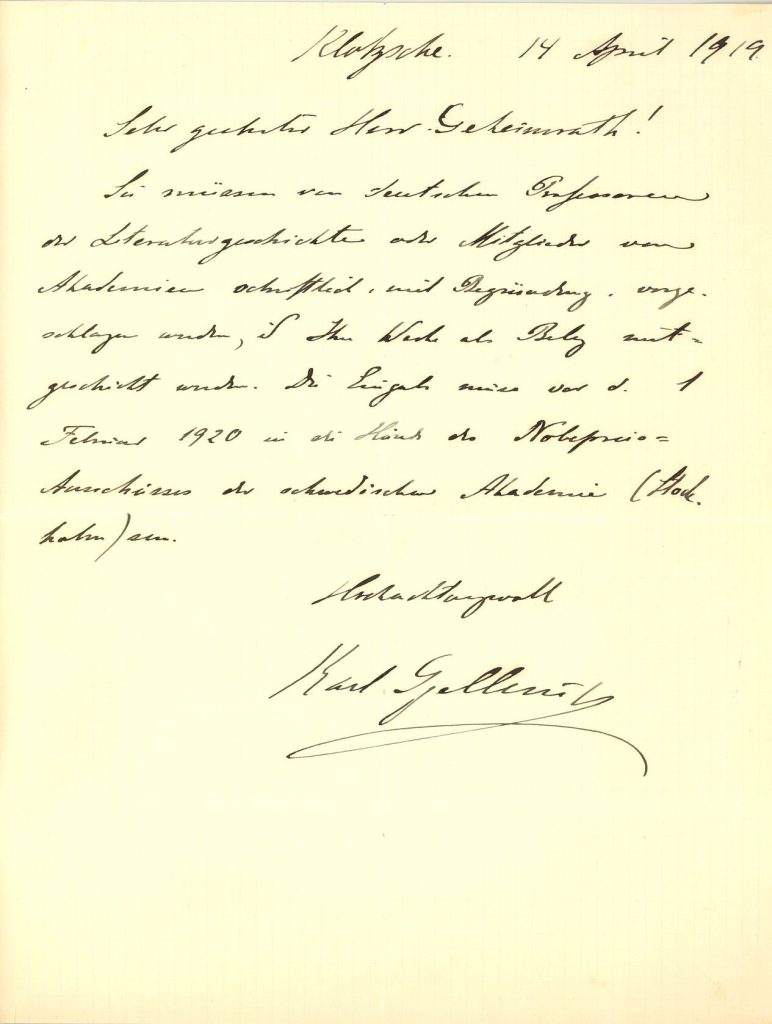 Klotzsche. 14 April 1919.
Sehr geehrter Herr Geheimrath!
Sie müssen von deutschen Professoren
der Literaturgeschichte oder Mitglieder von
Akademien schriftlich, mit Begründung, vorge-
schlagen werden, u Ihre Werke als Beleg mit=
geschickt werden. Die Eingabe muss vor d. 1
Februar 1920 in die Hände des Nobepreis=
Ausschusses der schwedischen Akademie (Stock-
holm) sein.
Hochachtungsvoll
Karl Gjellerup